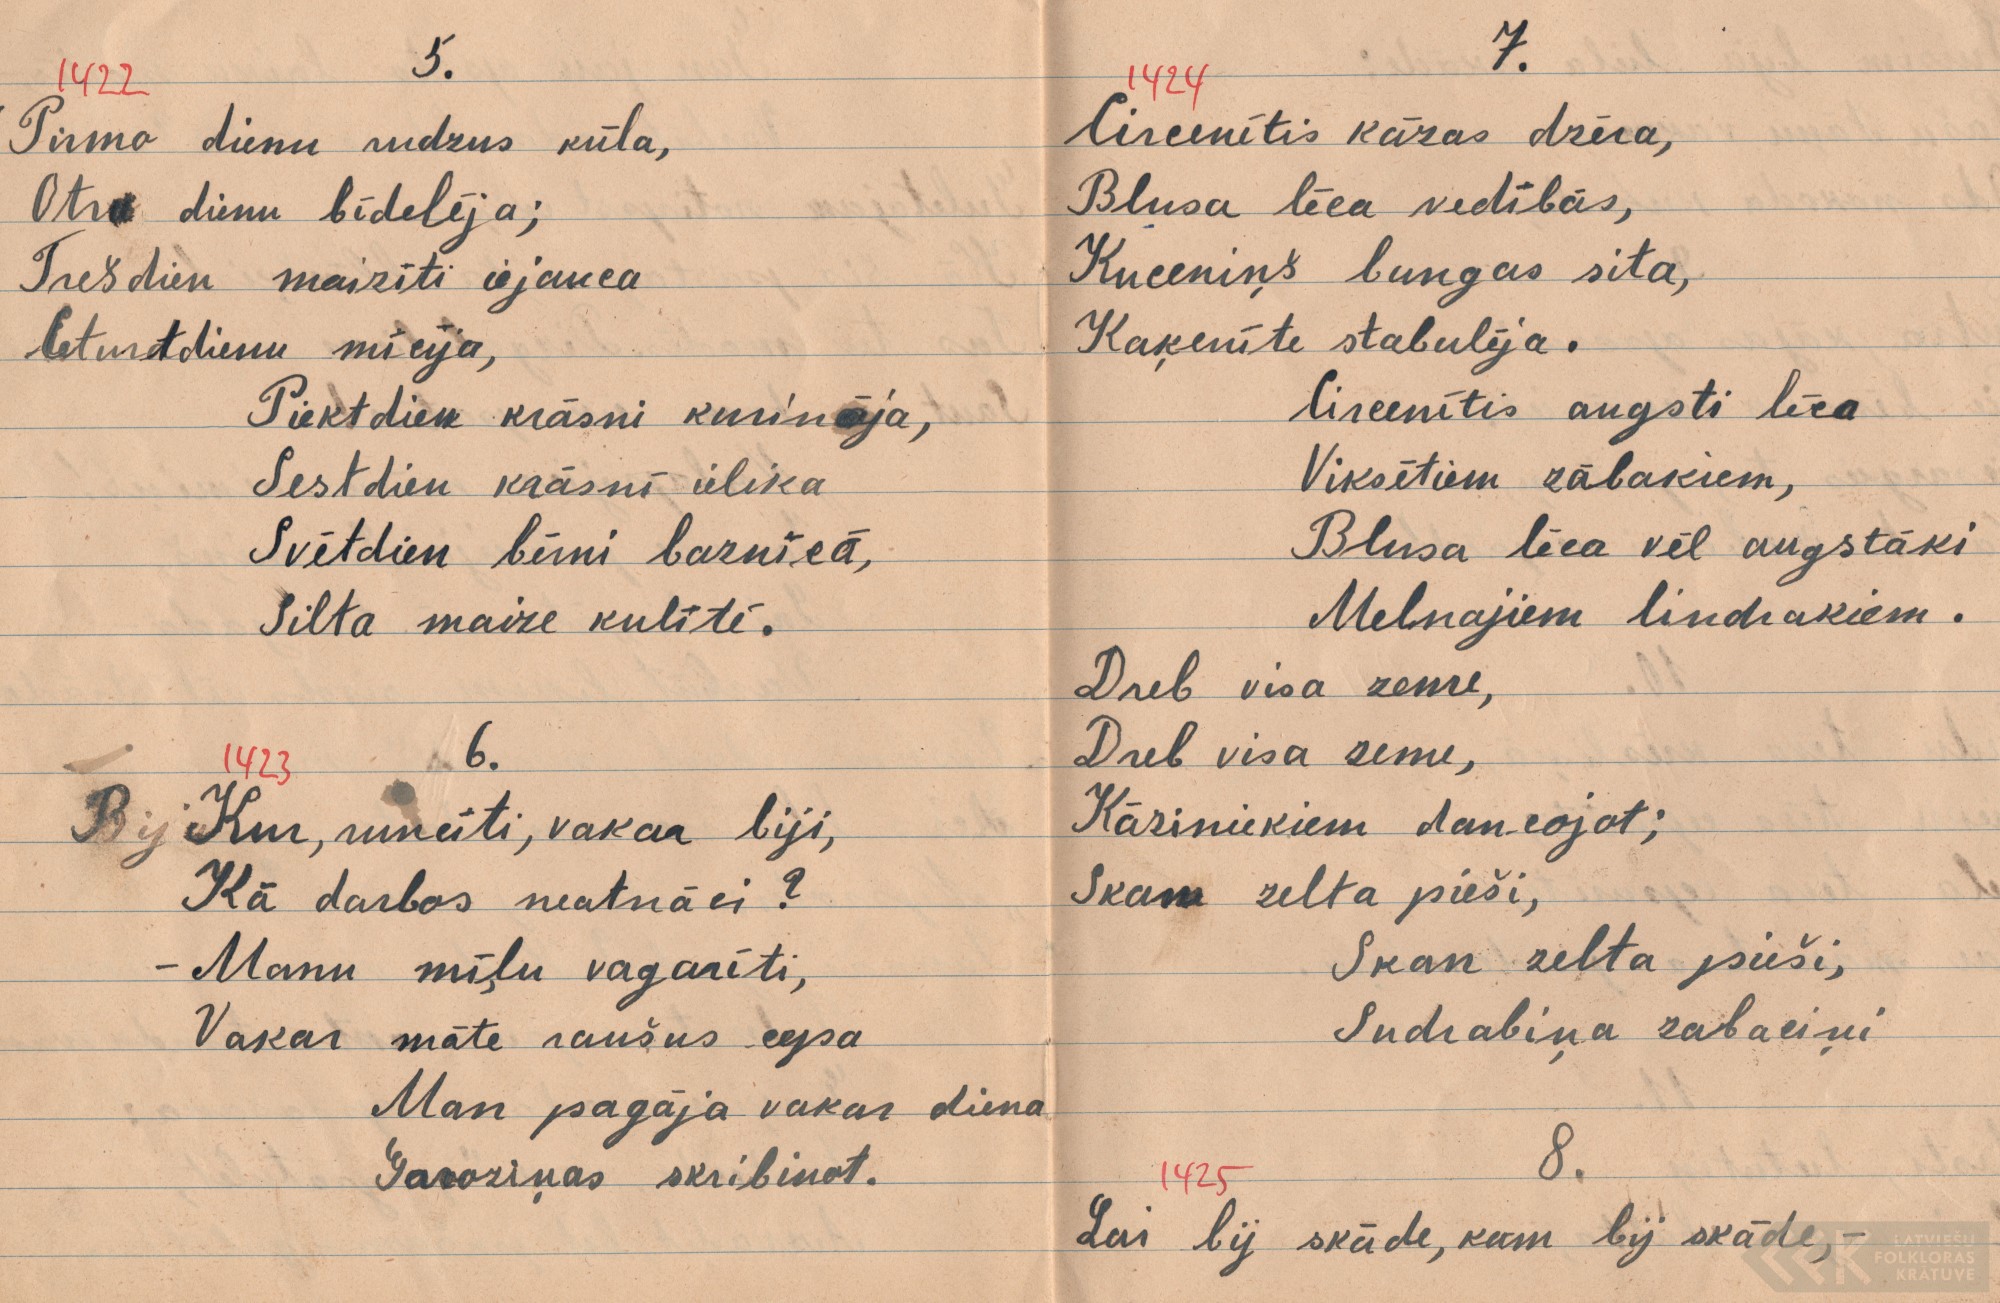 5.
1422
Pirmo dienu rudzus kūla,
Otra dienu bīdelēja;
Trešdien maizīti iejauca
Ceturtdienu mīcīja,
Piektdien krāsni kurināja,
Sestdien krāsnī ielika
Svētdien bērni baznīcā,
Silta maize kulītē.
6.
1423
Bij Kur, runcīti, vakar biji,
Kā darbos neatnāci?
– Manu mīļu vagarīti,
Vakar māte raušus cepa
Man pagāja vakar diena
Garoziņas skribinot.
7.
1424
Circenītis kāzas dzēra,
Blusa lēca vedībās,
Kuceniņš bungas sita,
Kaķenīte stabulēja.
Circenītis augsti lēca
Viksētiem zābakiem,
Blusa lēca vēl augstāki
Melnajiem lindrakiem.
Dreb visa zeme,
Dreb visa zeme,
Kāziniekiem dancojot;
Skan zelta pieši,
Skan zelta pieši,
Sudrabiņa zabaciņi
8.
1425
Lai bij skāde, kam bij skāde, –
LATVIEŠU
FOLKLORAS
KRĀTUVE